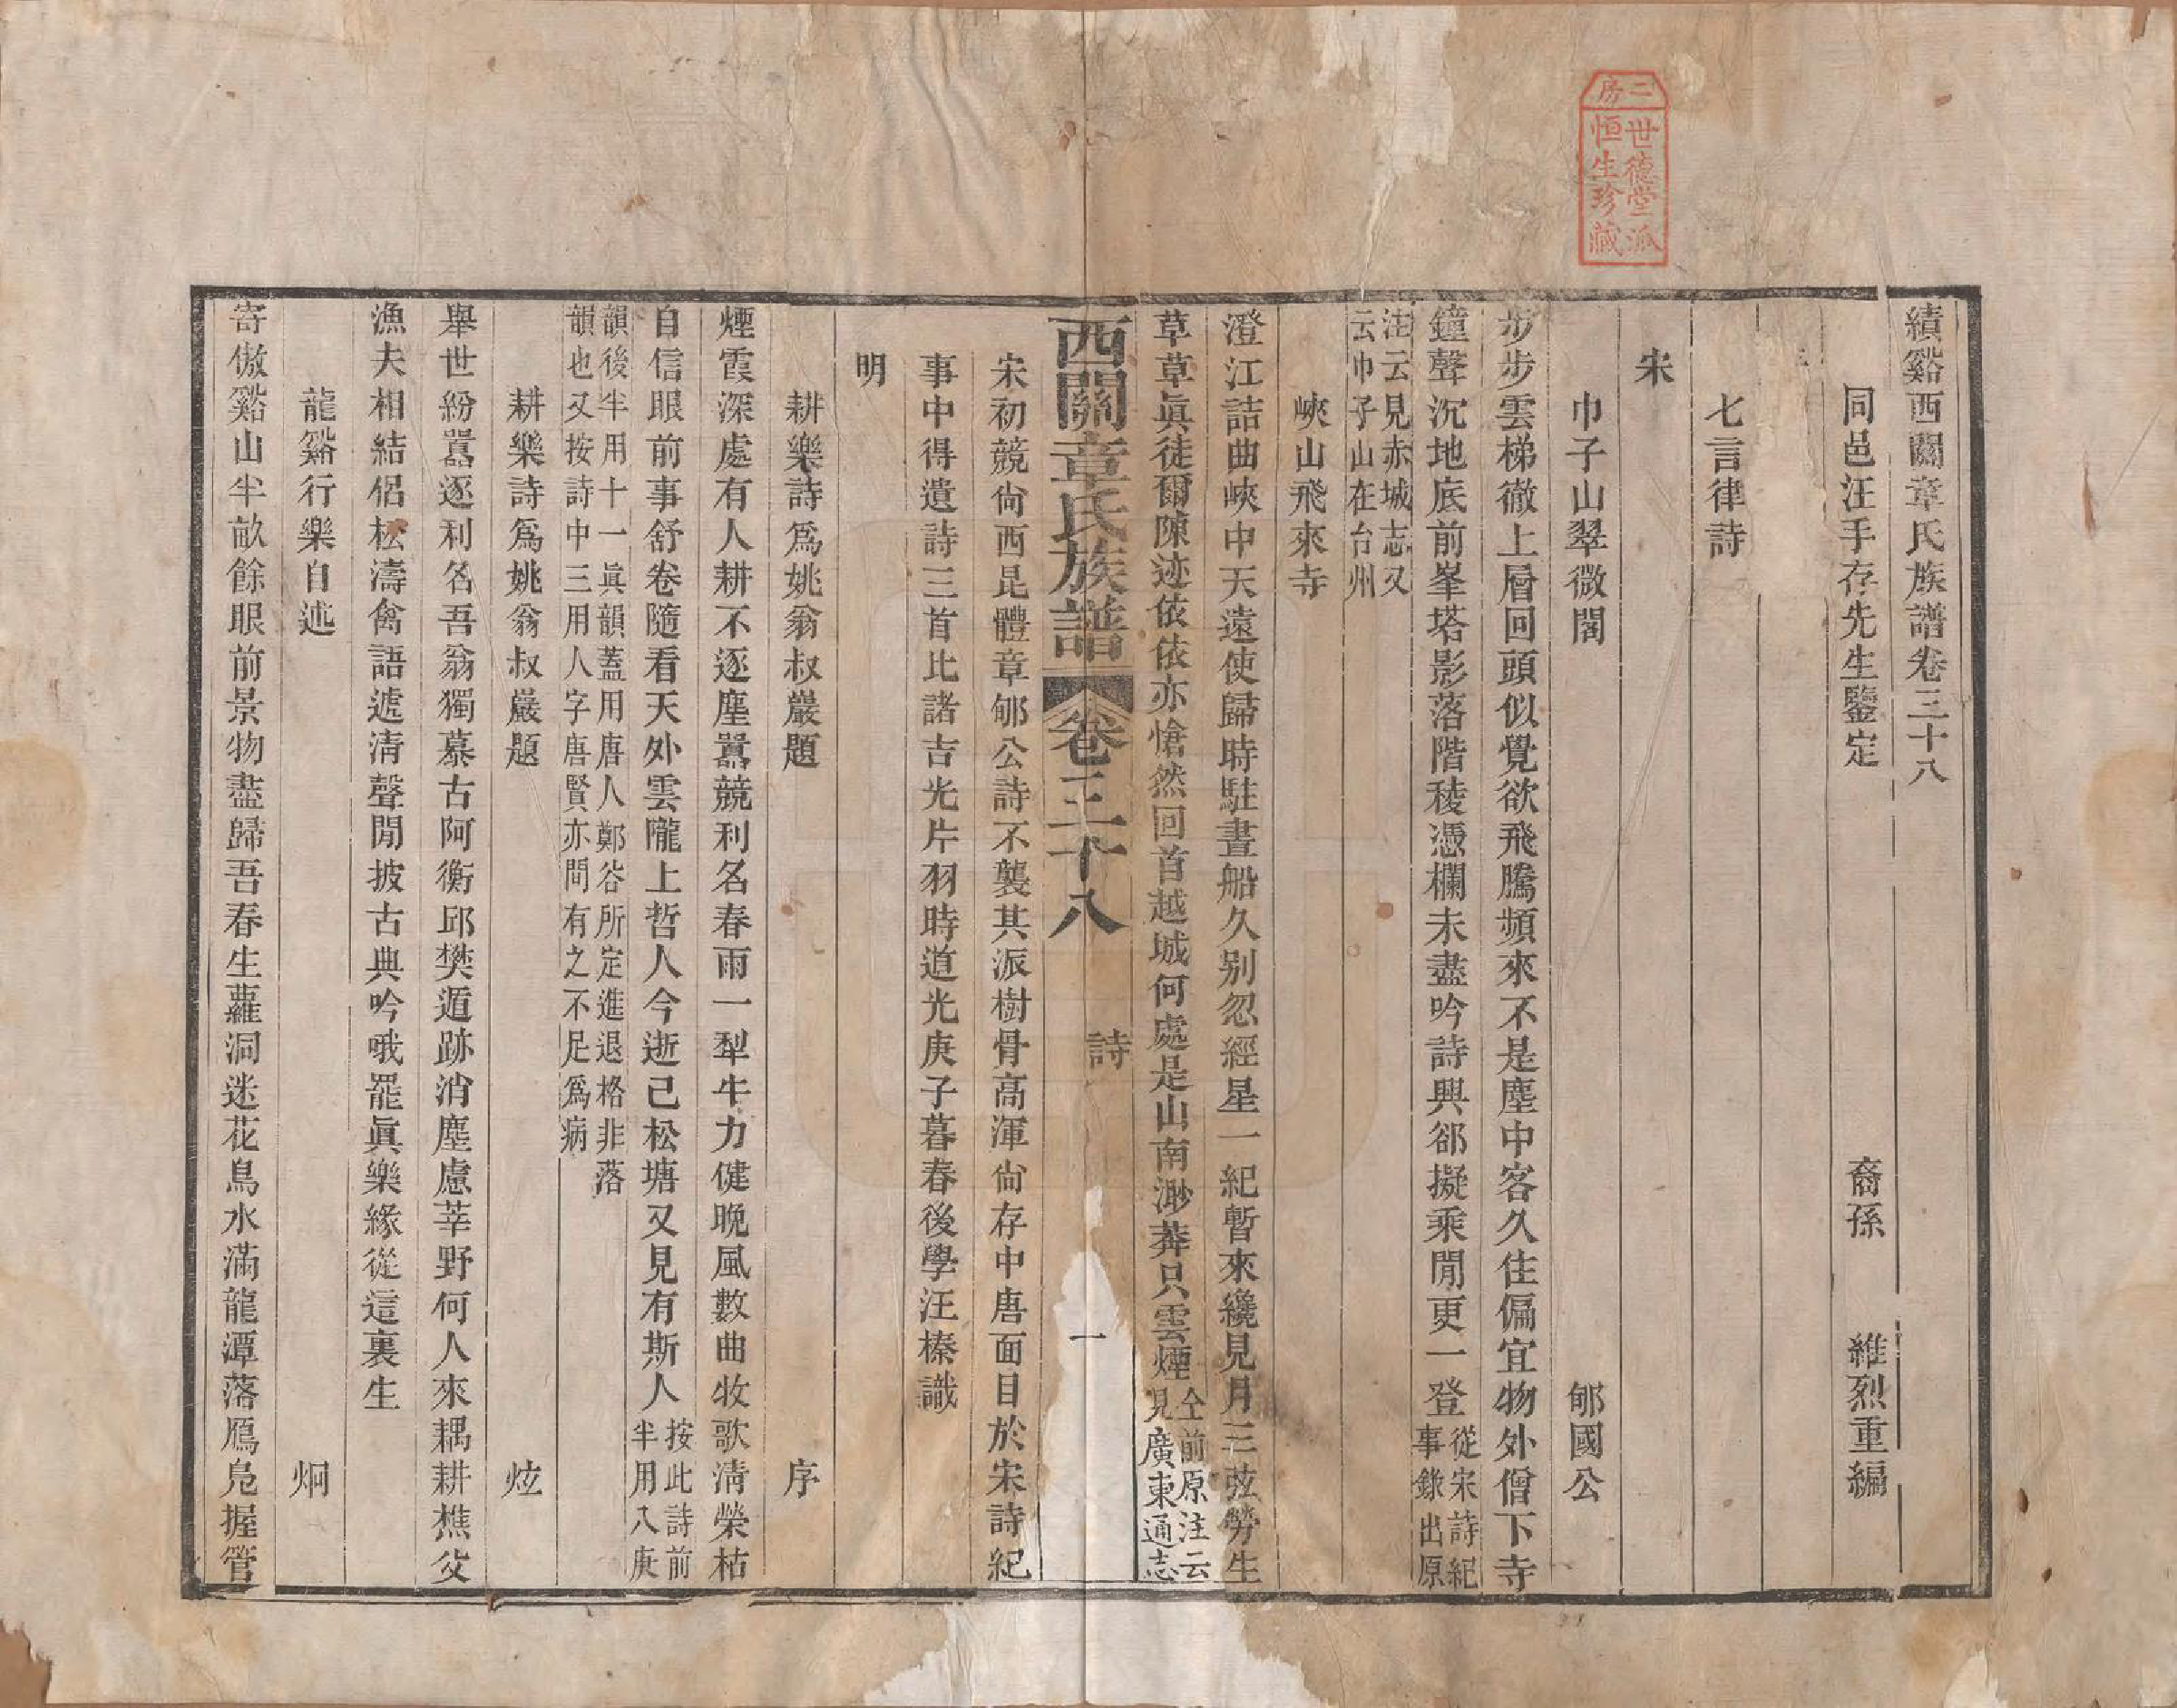 二房
世德堂派
恒生珍藏
績谿西關章氏族譜卷三十八
同邑汪手存先生鑒定　裔孫　維烈重編
七言律詩
宋
巾子山翠微閣　郇國公
步步雲梯徹上層回頭似覺欲飛騰頻來不是塵中客久住偏宜物外僧下寺
鐘聲沉地底前峯塔影落階稜憑欄未盡吟詩興郤擬乘閒更一登從宋詩紀
事錄出原
注云見赤城志又
云巾子山在台州
峽山飛來寺
澄江詰曲峽中天遠使歸時駐晝船久別忽經星一紀暫來纔見月三弦勞生
草草眞徒爾陳迹依依亦愴然回首越城何處是山南渺莽只雲煙仝前原注云
見廣東通志
西關章氏族譜　卷三十八　詩　一
宋初競尙西昆體章郇公詩不襲其派樹骨高渾尙存中唐面目於宋詩紀
事中得遺詩三首比諸吉光片羽時道光庚子暮春後學汪榛識
明
耕樂詩爲姚翁叔嚴題　序
煙霞深處有人耕不逐塵囂競利名春雨一犁牛力健晚風數曲牧歌淸榮枯
自信眼前事舒卷隨看天外雲隴上哲人今逝已松塘又見有斯人按此詩前
半用八庚
韻後半用十一眞韻蓋用唐人鄭谷所定進退格非落
韻也又按詩中三用人字唐賢亦間有之不足爲病
耕樂詩爲姚翁叔嚴題　炫
舉世紛囂逐利名吾翁獨慕古阿衡邱樊遁跡消塵慮莘野何人來耦耕樵父
漁夫相結侶松濤禽語遞淸聲閒披古典吟哦罷眞樂緣從這裏生
龍谿行樂自述　炯
寄傲谿山半畝餘眼前景物盡歸吾春生蘿洞迷花鳥水滿龍潭落鴈鳧握管